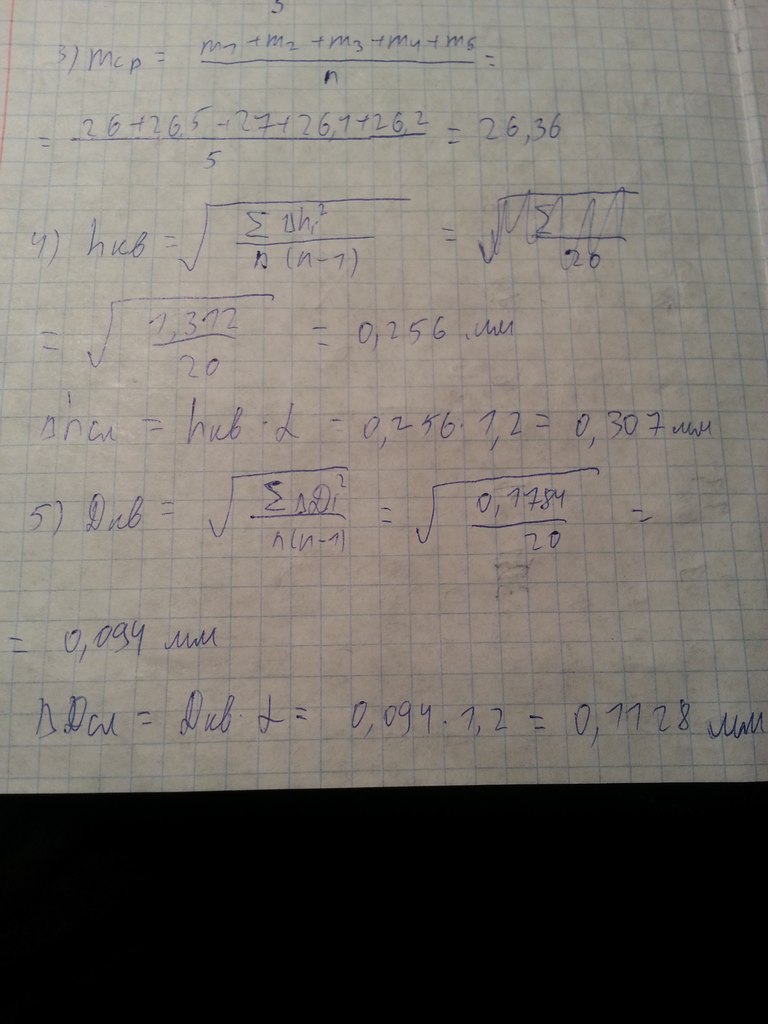 3) mср = m₁ + m₂ + m₃ + m₄ + m₅ / n =
= 26+26,5+27+26,1+26,2 / 5 = 26,36
4) hкв = √(Σ Δhᵢ² / n (n-1)) =
= √(1,312 / 20) = 0,256 мм
Δhсл = hкв · α = 0,256 · 1,2 = 0,307 мм
5) Dкв = √(Σ ΔDᵢ² / n(n-1)) = √(0,1784 / 20) =
= 0,094 мм
ΔDсл = Dкв · α = 0,094 · 1,2 = 0,1128 мм